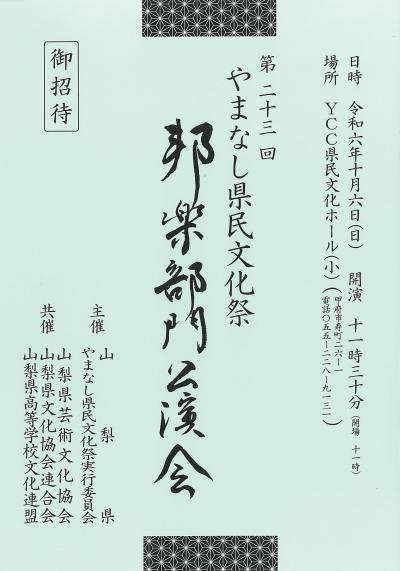 日時　令和六年十月六日(日)　開演　十一時三十分(開場　十一時)
場所　YCC県民文化ホール(小)(甲府市寿町二六ー一
電話〇五五ー二二八ー九一三一)
第二十三回
やまなし県民文化祭
邦楽部門公演会
御招待
主催　山梨県
やまなし県民文化祭実行委員会
共催　山梨県芸術文化協会
山梨県文化協会連合会
山梨県高等学校文化連盟